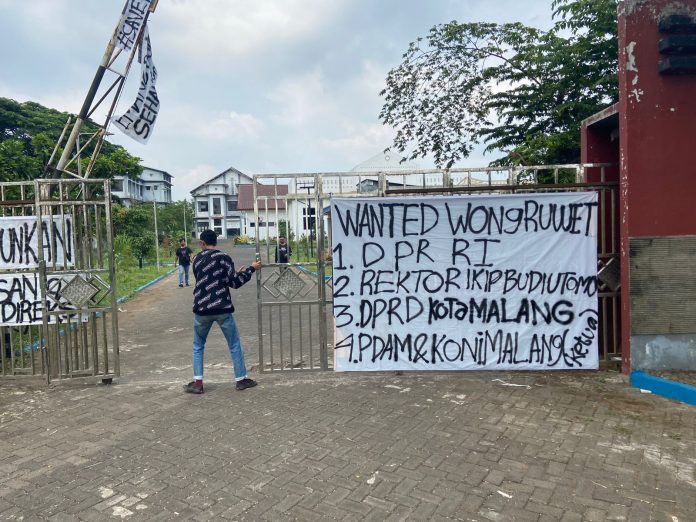 SEHU
UNKAN
SAN
DIREK
WANTED WONG RUWET
1. DPR RI
2. REKTOR IKIP BUDI UTOMO
3. DPRD KOTA MALANG
4. PDAM & KONI MALANG (Ketua)